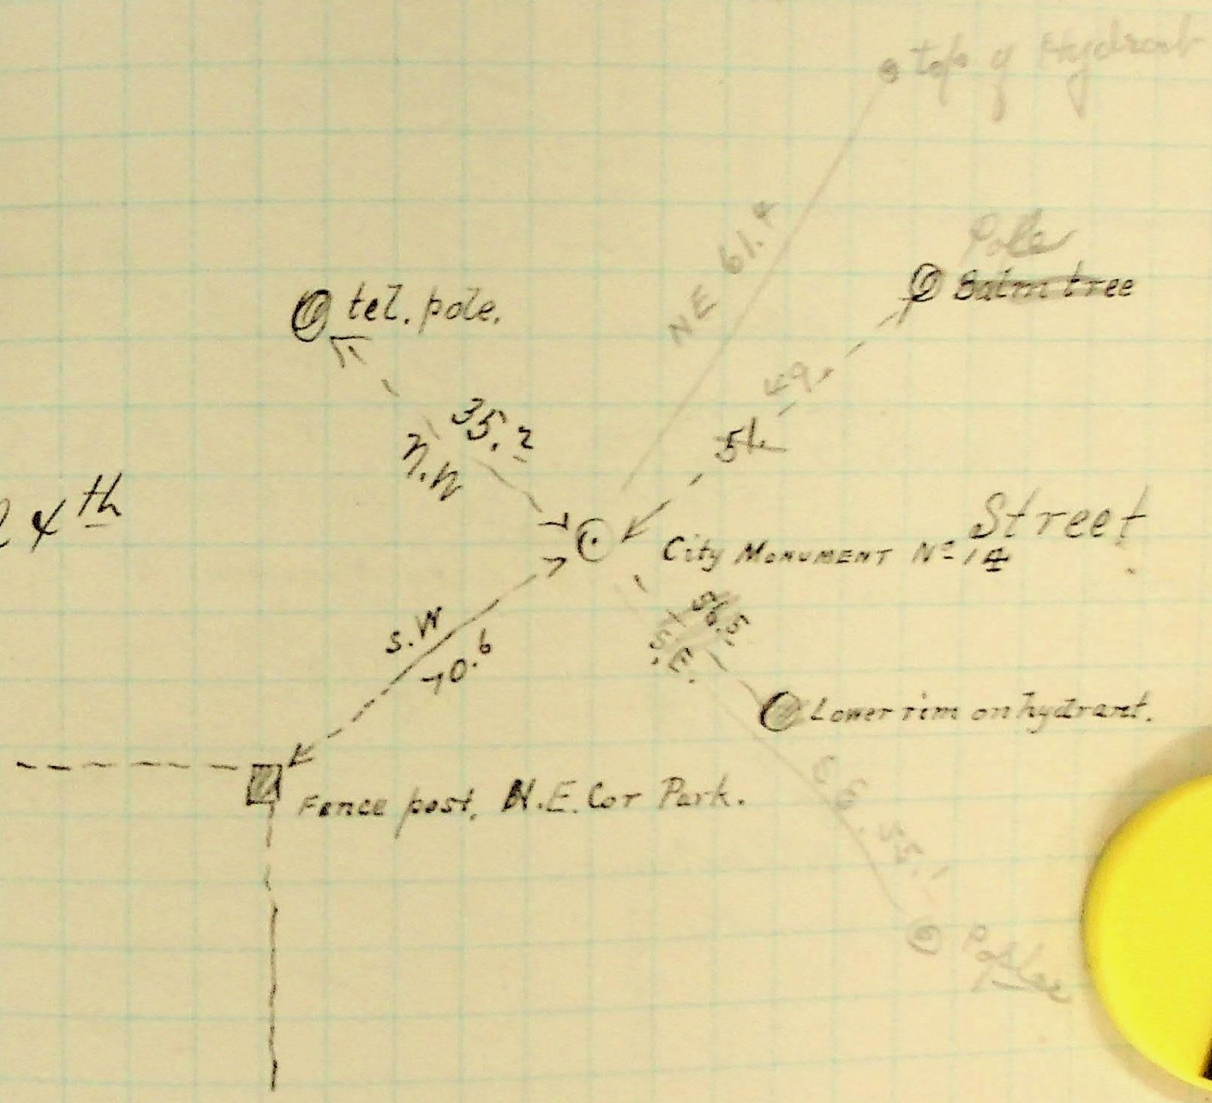 top of Hydrant
NE 61.4
Pole
Balm tree
tel. pole.
49.
35.2
N.W
4th
Street
City Monument No 14
56.5
S.E.
S.W
70.6
Lower rim on hydrant.
Fence post, N.E. Cor Park.
S.E. 55.1
Poplar